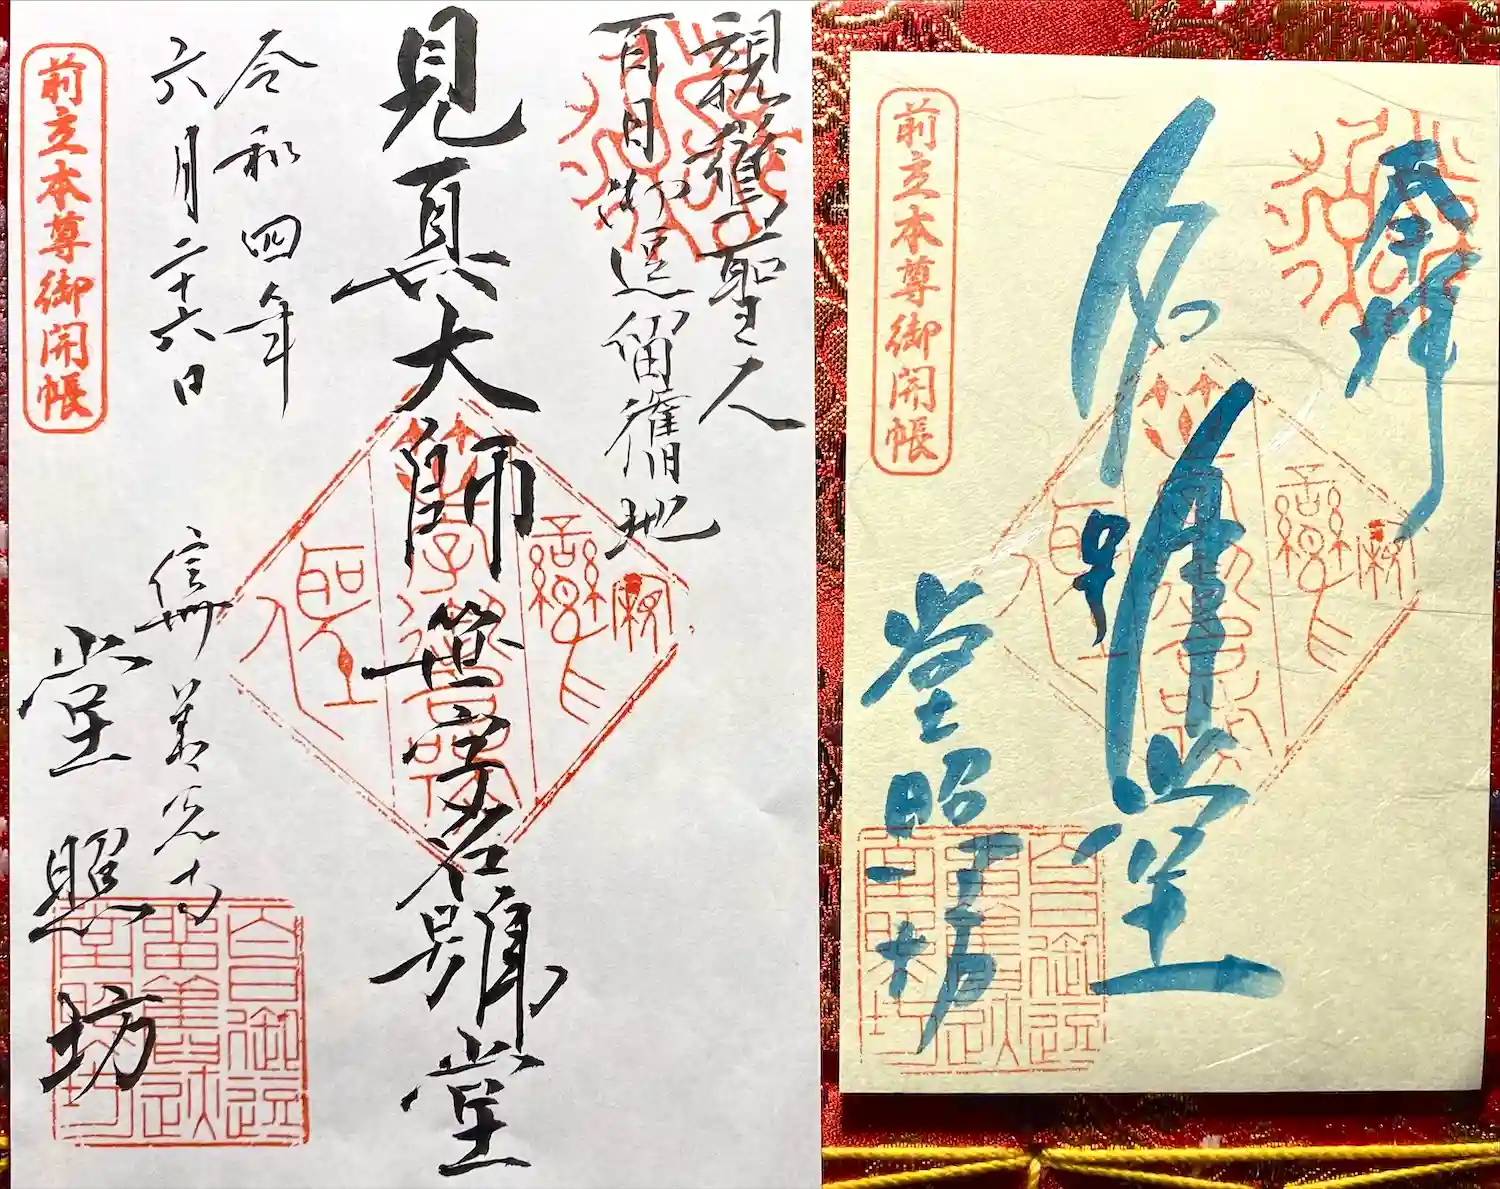 親鸞聖人
百日御逗留舊地
見真大師笹字名號堂
令和四年
六月二十六日
信州善光寺
堂照坊
前立本尊御開帳
奉拝
名號堂
堂照坊
前立本尊御開帳